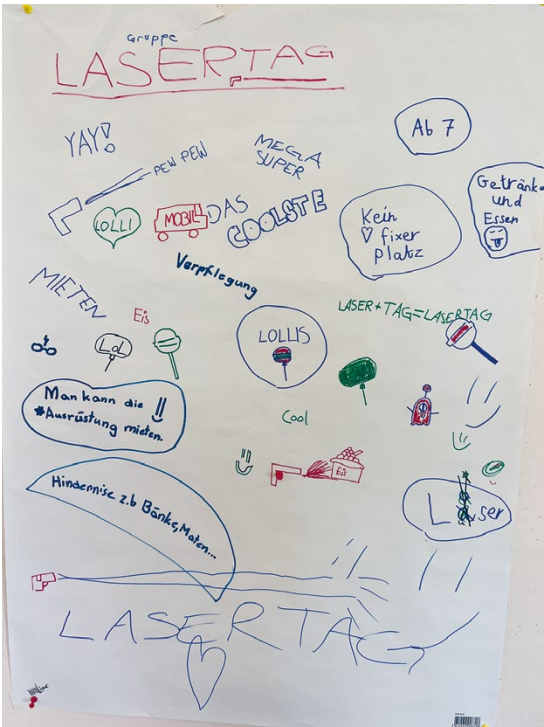 Gruppe
LASERTAG
YAY!
PEW PEW
MEGA
SUPER
Ab 7
LOLLI
MOBILL
DAS
COOLSTE
Kein
fixer
Platz
Getränke
und
Essen
Verpflegung
MIETEN
Eis
LASER+TAG=LASERTAG
Lol
LOLLIS
Man kann die
*Ausrüstung mieten.
Cool
Eis
Hindernise z.b Bänke,Maten...
Laser
LASERTAG